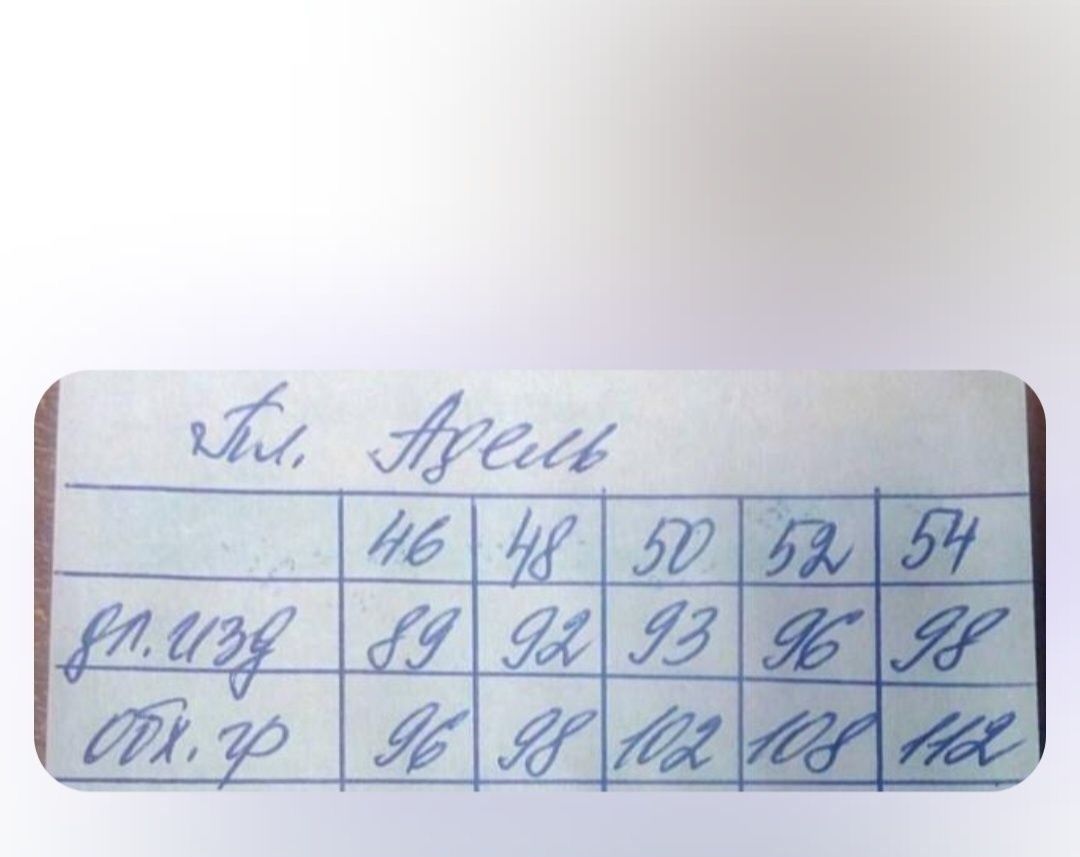 Пл. Адель
46 48 50 52 54
дл. изд 89 92 93 96 98
обх. гр 96 98 102 108 112